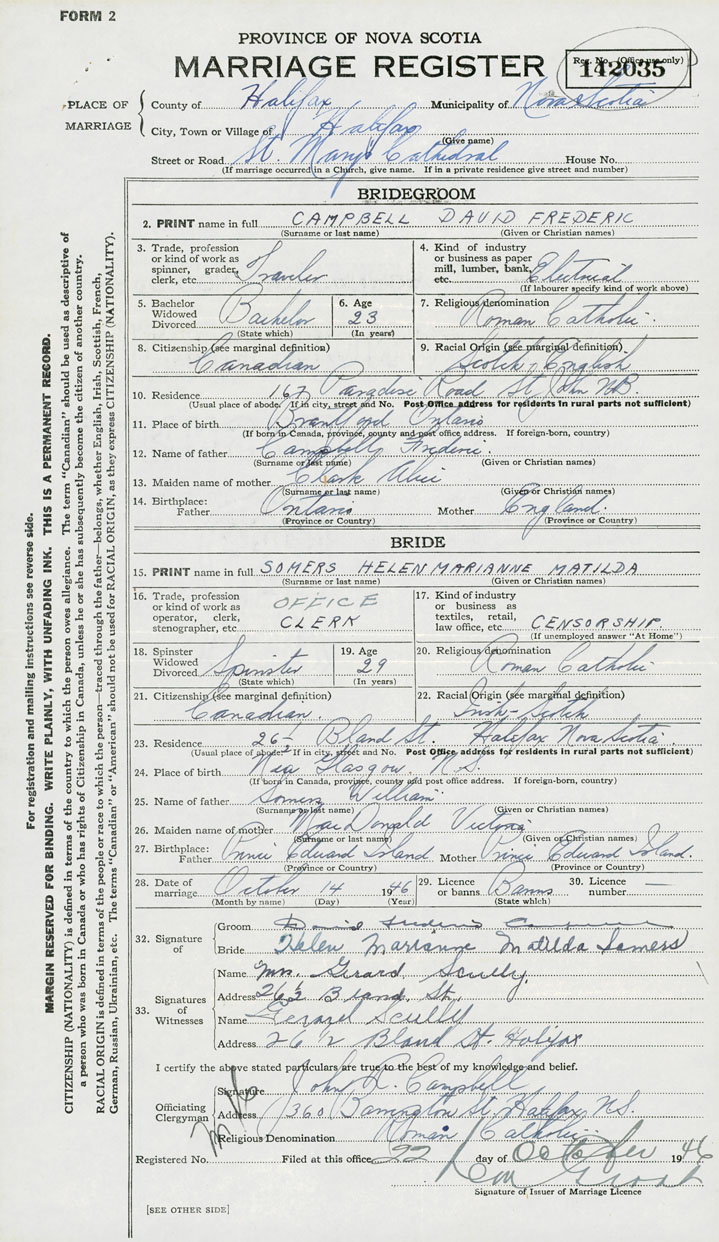 FORM 2
PROVINCE OF NOVA SCOTIA
MARRIAGE REGISTER
Reg. No. (Office use only)
142035
PLACE OF MARRIAGE
County of Halifax Municipality of Nova Scotia
City, Town or Village of Halifax
(Give name)
Street or Road St. Mary's Cathedral House No.
(If marriage occurred in a Church, give name. If in a private residence give street and number)
BRIDEGROOM
2. PRINT name in full CAMPBELL DAVID FREDERIC
(Surname or last name) (Given or Christian names)
3. Trade, profession or kind of work as spinner, grader, clerk, etc. Traveler
4. Kind of industry or business as paper mill, lumber, bank, etc. Electrical
(If labourer specify kind of work above)
5. Bachelor Widowed Divorced Bachelor
(State which)
6. Age 23
(In years)
7. Religious denomination Roman Catholic
8. Citizenship (see marginal definition) Canadian
9. Racial Origin (see marginal definition) Scotch English
10. Residence 162 Paradise Road St John NB
(Usual place of abode. If in city, street and No. Post Office address for residents in rural parts not sufficient)
11. Place of birth Brantford Ontario
(If born in Canada, province, county and post office address. If foreign-born, country)
12. Name of father Campbell Frederic
(Surname or last name) (Given or Christian names)
13. Maiden name of mother Clark Alice
(Surname or last name) (Given or Christian names)
14. Birthplace: Father Ontario Mother England.
(Province or Country) (Province or Country)
BRIDE
15. PRINT name in full SOMERS HELEN MARIANNE MATILDA
(Surname or last name) (Given or Christian names)
16. Trade, profession or kind of work as operator, clerk, stenographer, etc. OFFICE CLERK
17. Kind of industry or business as textiles, retail, law office, etc. CENSORSHIP
(If unemployed answer "At Home")
18. Spinster Widowed Divorced Spinster
(State which)
19. Age 29
(In years)
20. Religious denomination Roman Catholic
21. Citizenship (see marginal definition) Canadian.
22. Racial Origin (see marginal definition) Irish-Scotch
23. Residence 26½ Bland St. Halifax Nova Scotia.
(Usual place of abode. If in city, street and No. Post Office address for residents in rural parts not sufficient)
24. Place of birth New Glasgow, N.S.
(If born in Canada, province, county and post office address. If foreign-born, country)
25. Name of father Somers William
(Surname or last name) (Given or Christian names)
26. Maiden name of mother MacDonald Victoria
(Surname or last name) (Given or Christian names)
27. Birthplace: Father Prince Edward Island Mother Prince Edward Island.
(Province or Country) (Province or Country)
28. Date of marriage October 14 1946
(Month by name) (Day) (Year)
29. Licence or banns Banns
(State which)
30. Licence number —
32. Signature of
Groom David Frederic Campbell
Bride Helen Marianne Matilda Somers
33. Signatures of Witnesses
Name Mrs. Gerard Scully.
Address 26½ Bland St.
Name Gerard Scully
Address 26½ Bland St. Halifax
I certify the above stated particulars are true to the best of my knowledge and belief.
Officiating Clergyman
Signature John R. Campbell
Address 1360 Barrington St. Halifax, N.S.
Religious Denomination Roman Catholic
Registered No. Filed at this office 22 day of October 1946
Signature of Issuer of Marriage Licence
[SEE OTHER SIDE]
For registration and mailing instructions see reverse side.
MARGIN RESERVED FOR BINDING. WRITE PLAINLY, WITH UNFADING INK. THIS IS A PERMANENT RECORD.
CITIZENSHIP (NATIONALITY) is defined in terms of the country to which the person owes allegiance. The term "Canadian" should be used as descriptive of
a person who was born in Canada or who has rights of Citizenship in Canada, unless he or she has subsequently become the citizen of another country.
RACIAL ORIGIN is defined in terms of the people or race to which the person—traced through the father—belongs, whether English, Irish, Scottish, French,
German, Russian, Ukrainian, etc. The terms "Canadian" or "American" should not be used for RACIAL ORIGIN, as they express CITIZENSHIP (NATIONALITY).